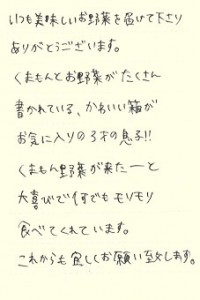 いつも美味しいお野菜を届けて下さり
ありがとうございます。
くまもんとお野菜がたくさん
書かれている、かわいい箱が
お気に入りの3才の息子!!
くまもん野菜が来たーと
大喜びで何でもモリモリ
食べてくれています。
これからも宜しくお願い致します。